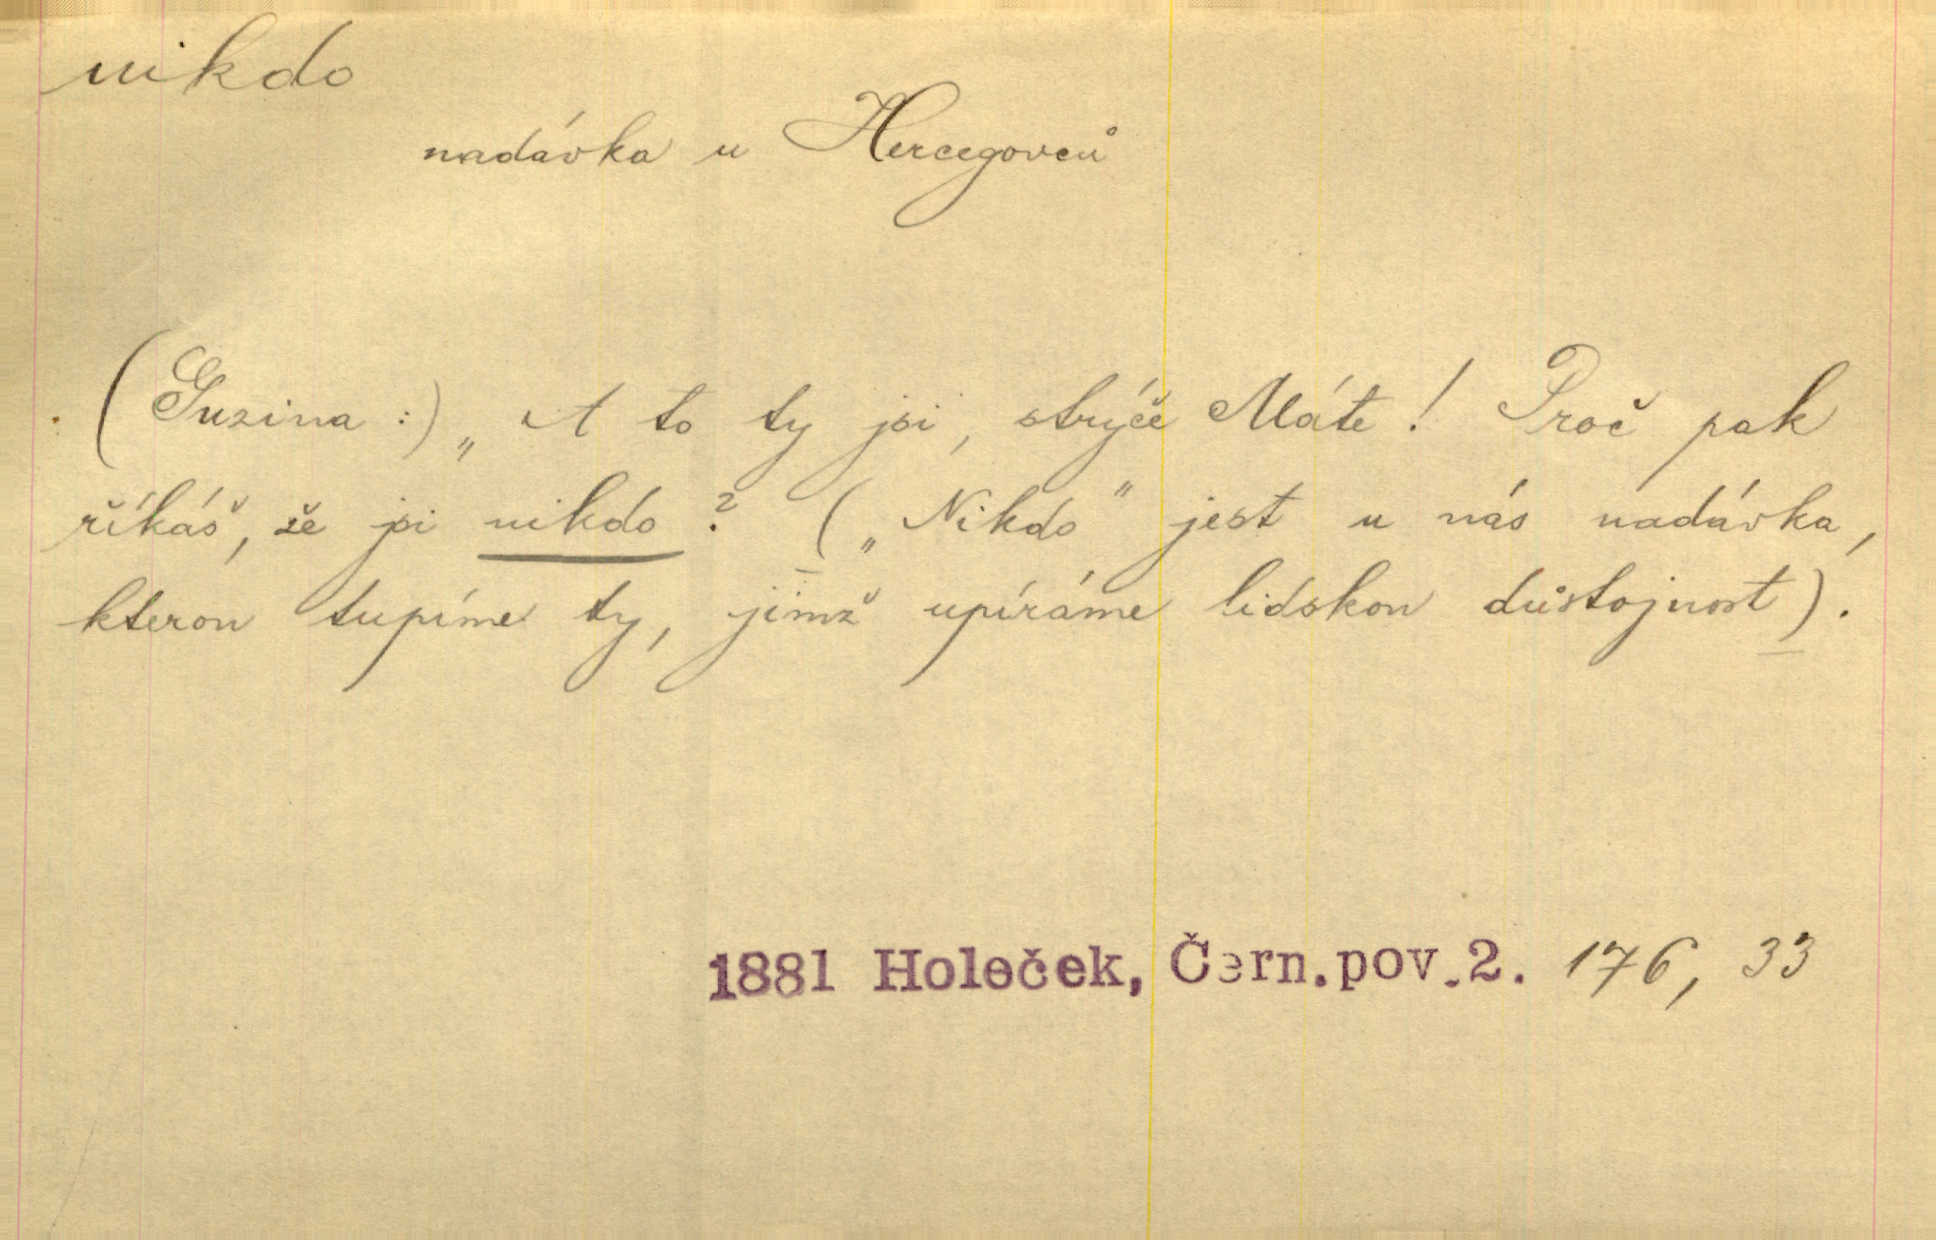 nikdo
nadávka u Hercegovců
(Guzina :) „A to ty jsi, strýče Máte! Proč pak
říkáš, že jsi nikdo? („Nikdo" jest u nás nadávka,
kterou tupíme ty, jimž upíráme lidskou důstojnost).
1881 Holeček, Čern.pov.2. 176, 33